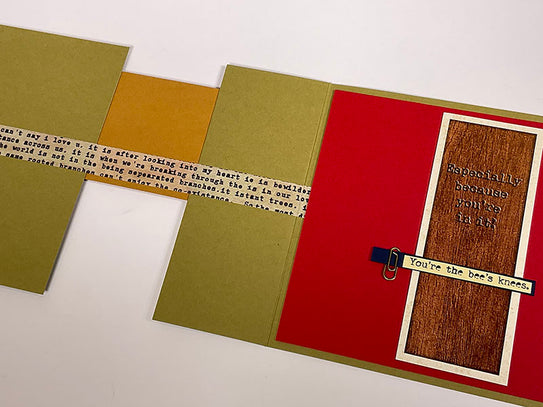 can't say i love u. it is after looking into my heart is a bewilder
tance across us. it is when we're breaking through the is in our lov
he world is not in the being sepearated branches.it istant trees. i
same rooted branches can't enjoy the co-existance. So the most
Especially
because
you're
in it!
You're the bee's knees.